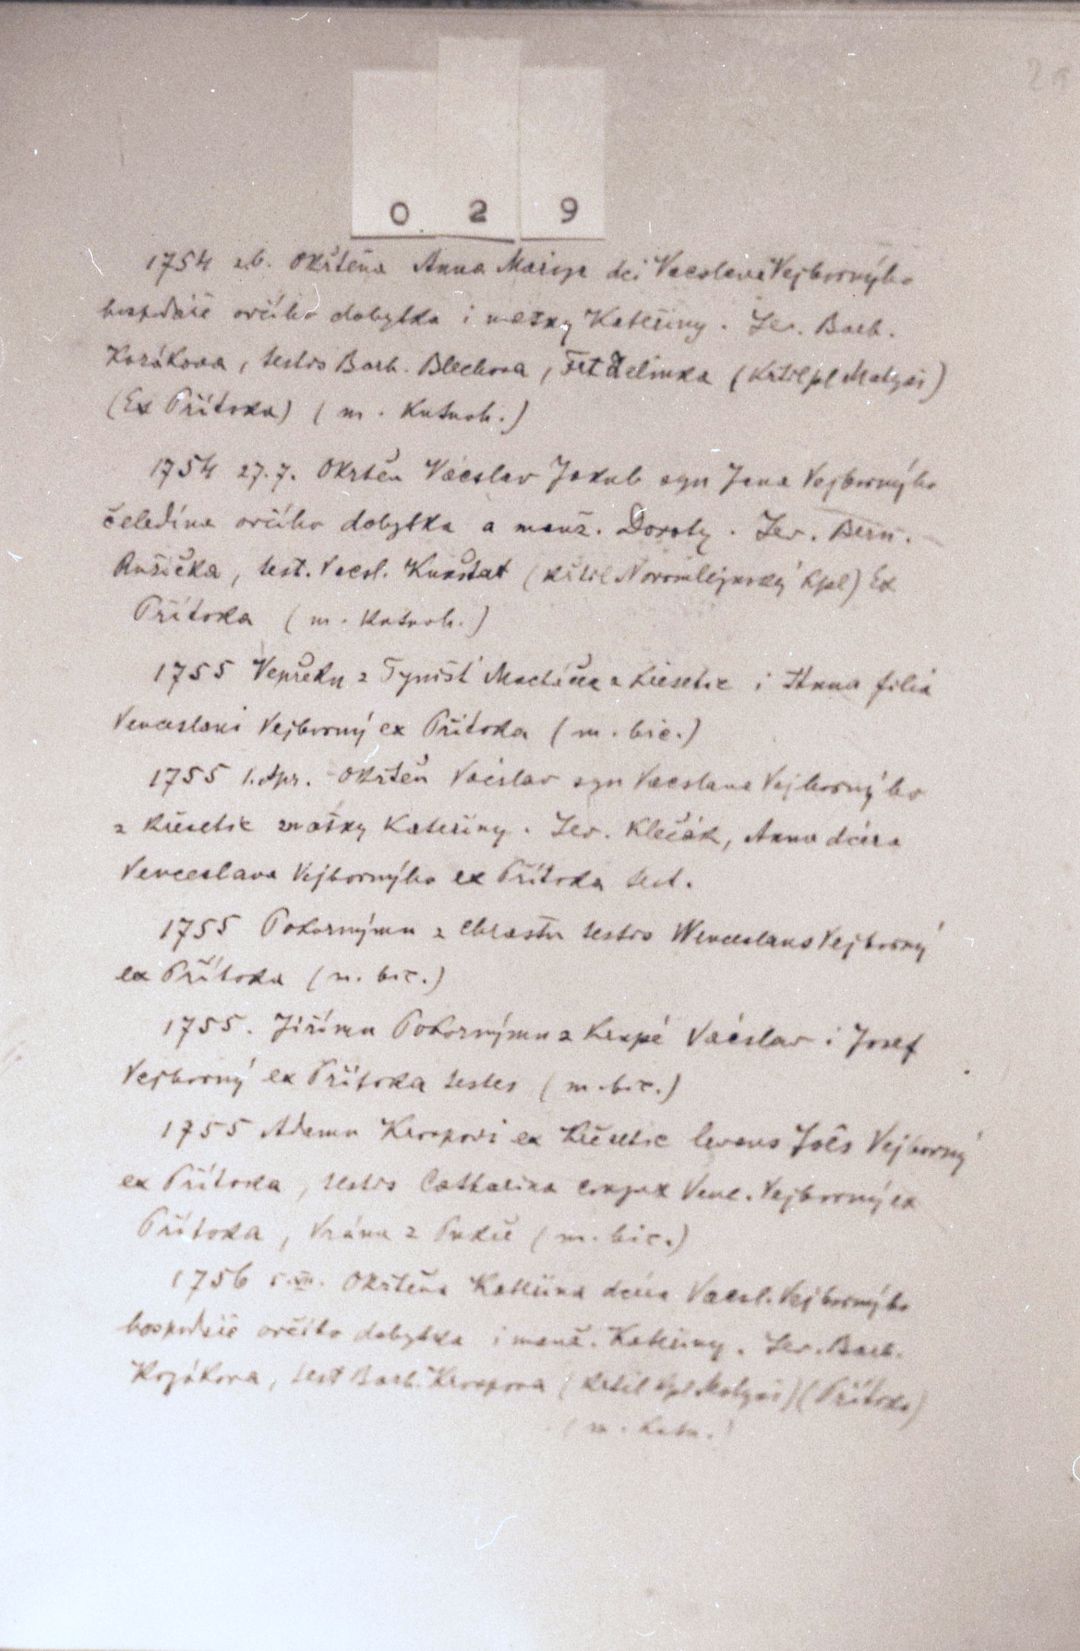 029
1754 2.6. Okřtěna Anna Marye dci Vacslava Vejborného
hospodáře orčího dobytka i matky Kateřiny. Lev. Barb.
Korákova, testis Barb. Blechova, Frt Zelinka (Křtil pl Matyáš)
(Ex Přítoka) (m. Kutnoh.)
1754 27.7. Okrtěn Vacslav Jakub syn Jana Vejborného
čeledína orčího dobytka a manž. Doroty. Lev. Bern.
Rušička, test. Vacsl. Kunštat (křtil kpl) Ex
Přítoka (m. Kutnoh.)
1755 z Týniště z Křesetic i Anna filia
Venceslaui Vejborný ex Přítoka (m. bic.)
1755 1. Apr. Okřtěn Vácslav syn Vacslava Vejborného
z Křesetic matky Kateřiny. Lev. Klečák, Anna dcéra
Venceslava Vejborného ex Přítoka test.
1755 Pokornýmu z Chrastu testis Wenceslaus Vejborný
ex Přítoka (m. bic.)
1755. Jiřímu Pokornýmu z Vácslav i Josef
Vejborný ex Přítoka testes (m. bic.)
1755 Adamu Kroupovi ex Křesetic levans Joês Vejborný
ex Přítoka, testis Catharina conjux Venc. Vejborný ex
Přítoka, Vrána z (m. bic.)
1756 Okřtěna Kateřina dcéra Vacsl. Vejborného
hospodáře orčího dobytka i manž. Kateřiny. Lev. Barb.
Kozákova, test Barb. Kroupova (křtil kpl Matyáš) (Přítoka)
(m. Kutn.)